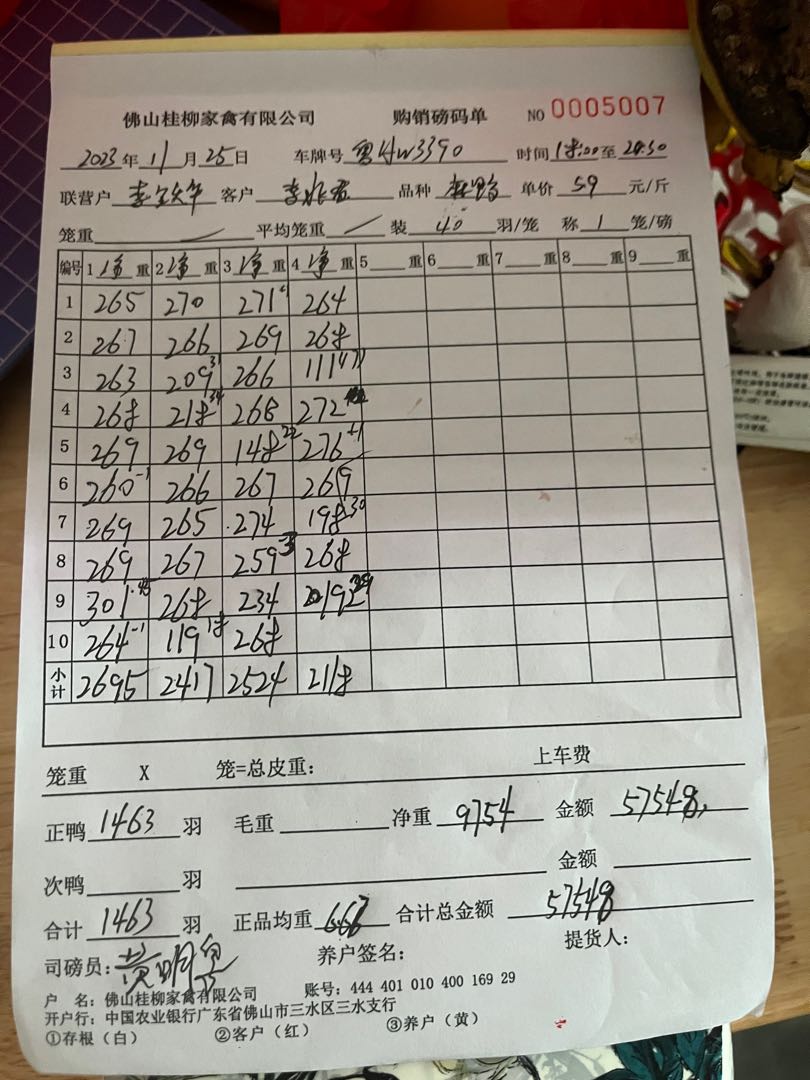 佛山桂柳家禽有限公司 购销磅码单 NO 0005007
2023年 11月 25日 车牌号 粤HW3390 时间 18:00 至 20:30
联营户 客户 品种 单价 59 元/斤
笼重 / 平均笼重 / 装 40 羽/笼 称 1 笼/磅
编号 1 净 重 2 净 重 3 净 重 4 净 重 5 重 6 重 7 重 8 重 9 重
1 265 270 271 264
2 267 266 269 268
3 263 209 31 266 111
4 268 218 34 268 272
5 269 269 148 22 276 +1
6 260 -1 266 267 269
7 269 265 274 198 30
8 269 267 259 268
9 301 45 268 234 192
10 264 -1 119 18 268
小计 2695 2417 2524 2118
笼重 X 笼=总皮重: 上车费
正鸭 1463 羽 毛重 净重 9754 金额 57548
次鸭 羽 金额
合计 1463 羽 正品均重 6.67 合计总金额 57548
司磅员: 养户签名: 提货人:
户 名: 佛山桂柳家禽有限公司 账号: 444 401 010 400 169 29
开户行: 中国农业银行广东省佛山市三水区三水支行
①存根（白） ②客户（红） ③养户（黄）